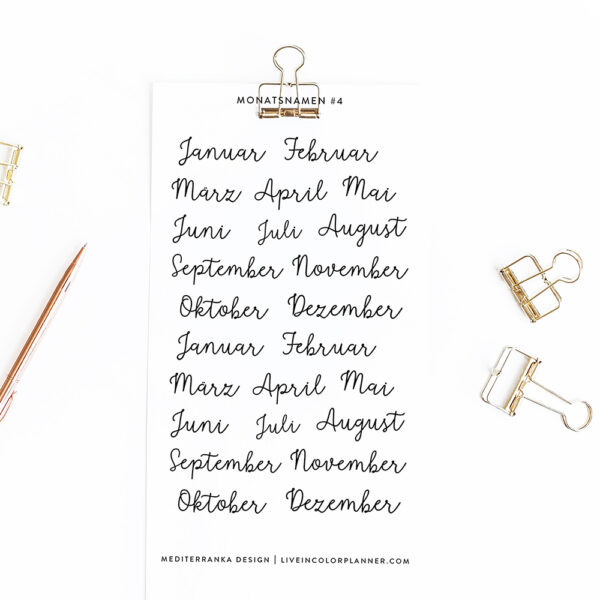 MONATSNAMEN #4
Januar Februar
März April Mai
Juni Juli August
September November
Oktober Dezember
Januar Februar
März April Mai
Juni Juli August
September November
Oktober Dezember
MEDITERRANKA DESIGN | LIVEINCOLORPLANNER.COM